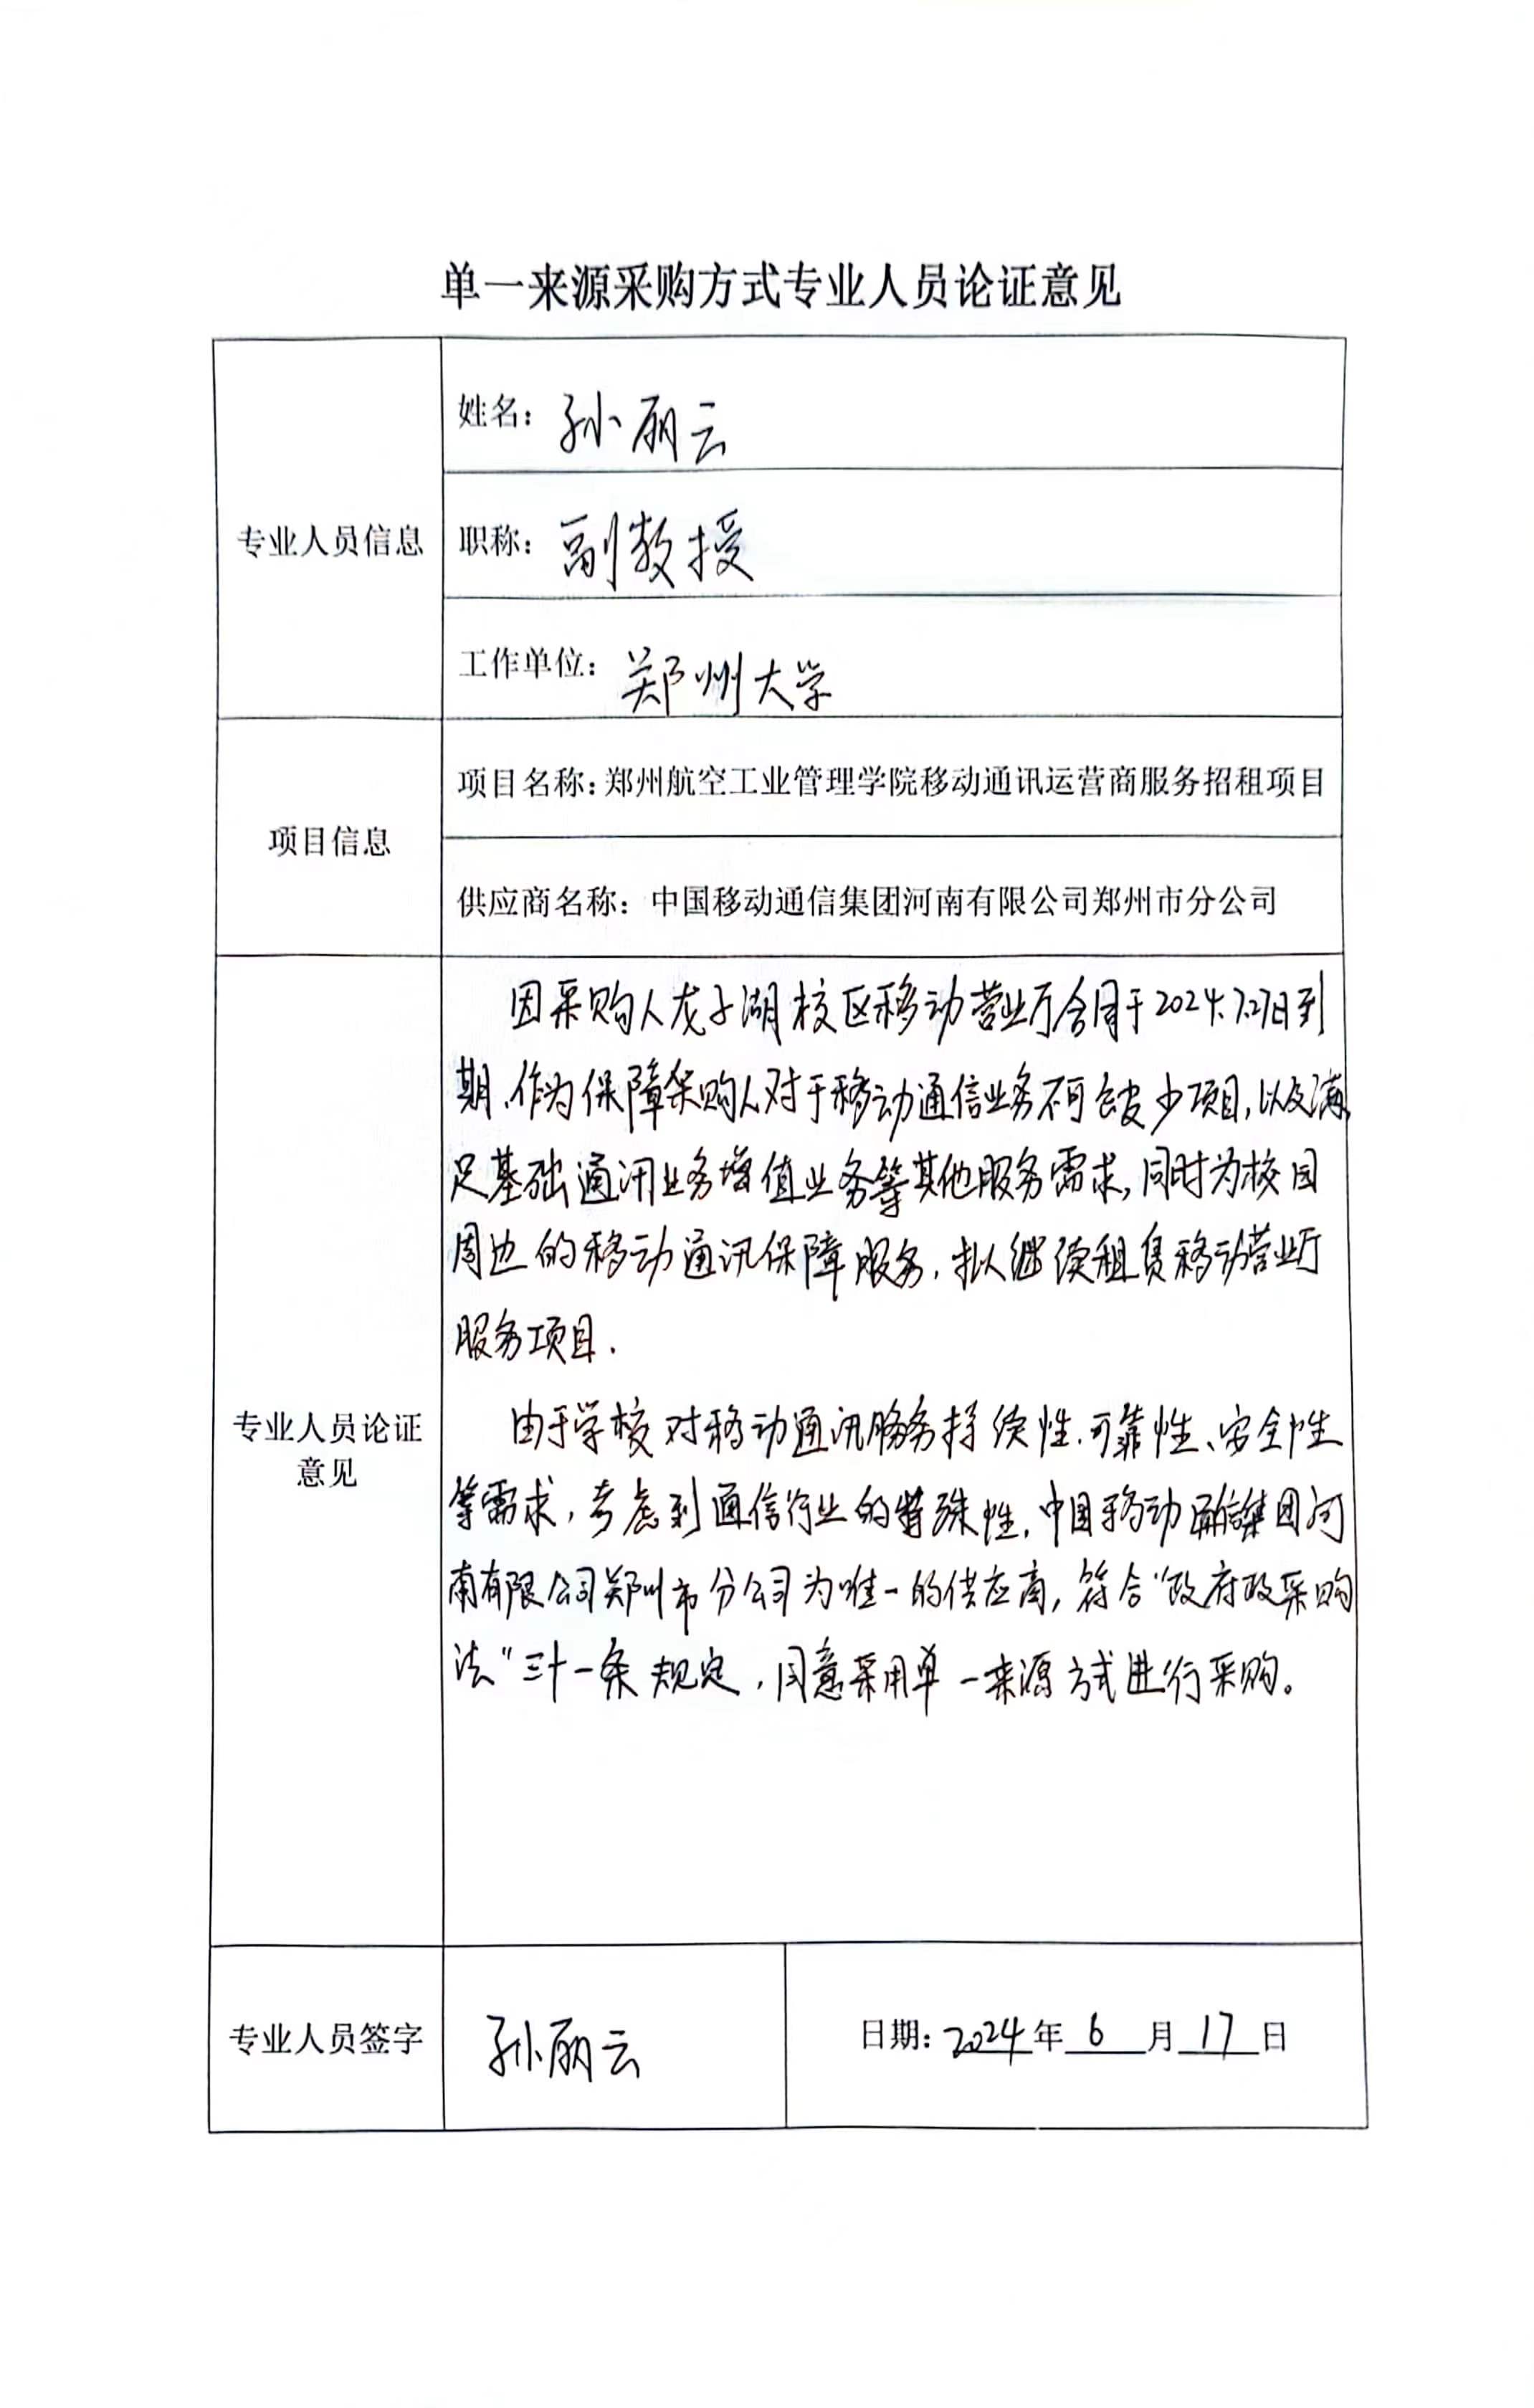 单一来源采购方式专业人员论证意见
专业人员信息
姓名：孙丽云
职称：副教授
工作单位：郑州大学
项目信息
项目名称：郑州航空工业管理学院移动通讯运营商服务招租项目
供应商名称：中国移动通信集团河南有限公司郑州市分公司
专业人员论证
意见
因采购人龙子湖校区移动营业厅合同于2024.7.27日到
期、作为保障采购人对于移动通信业务不可缺少项目，以及满
足基础通讯业务增值业务等其他服务需求，同时为校园
周边的移动通讯保障服务，拟继续租赁移动营业厅
服务项目.
由于学校对移动通讯服务持续性、可靠性、安全性
等需求，考虑到通信行业的特殊性，中国移动通信集团河
南有限公司郑州市分公司为唯一的供应商，符合“政府政采购
法”三十一条规定，同意采用单一来源方式进行采购。
专业人员签字
孙丽云
日期：2024年6月17日